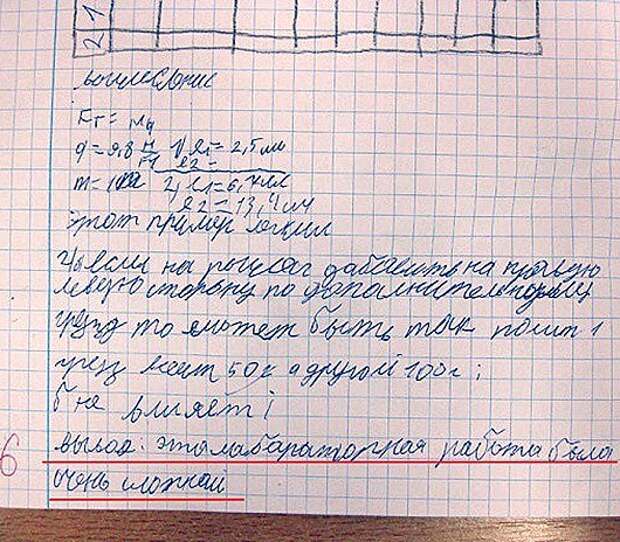 1
2
вычисление
Fт = mg
g = 9,8 Н/кг 1) l1 = 2,5 см
l2 =
m = 2) l1 = 6,4 см
l2 = 13,4 см
этот пример легкий
если на рычаг дабавить на правую
левую сторону по дополнительному
то может быть так 1
50г а другой 100г;
не влияет!
6
вывод: эта лабараторная работа была
очень сложной